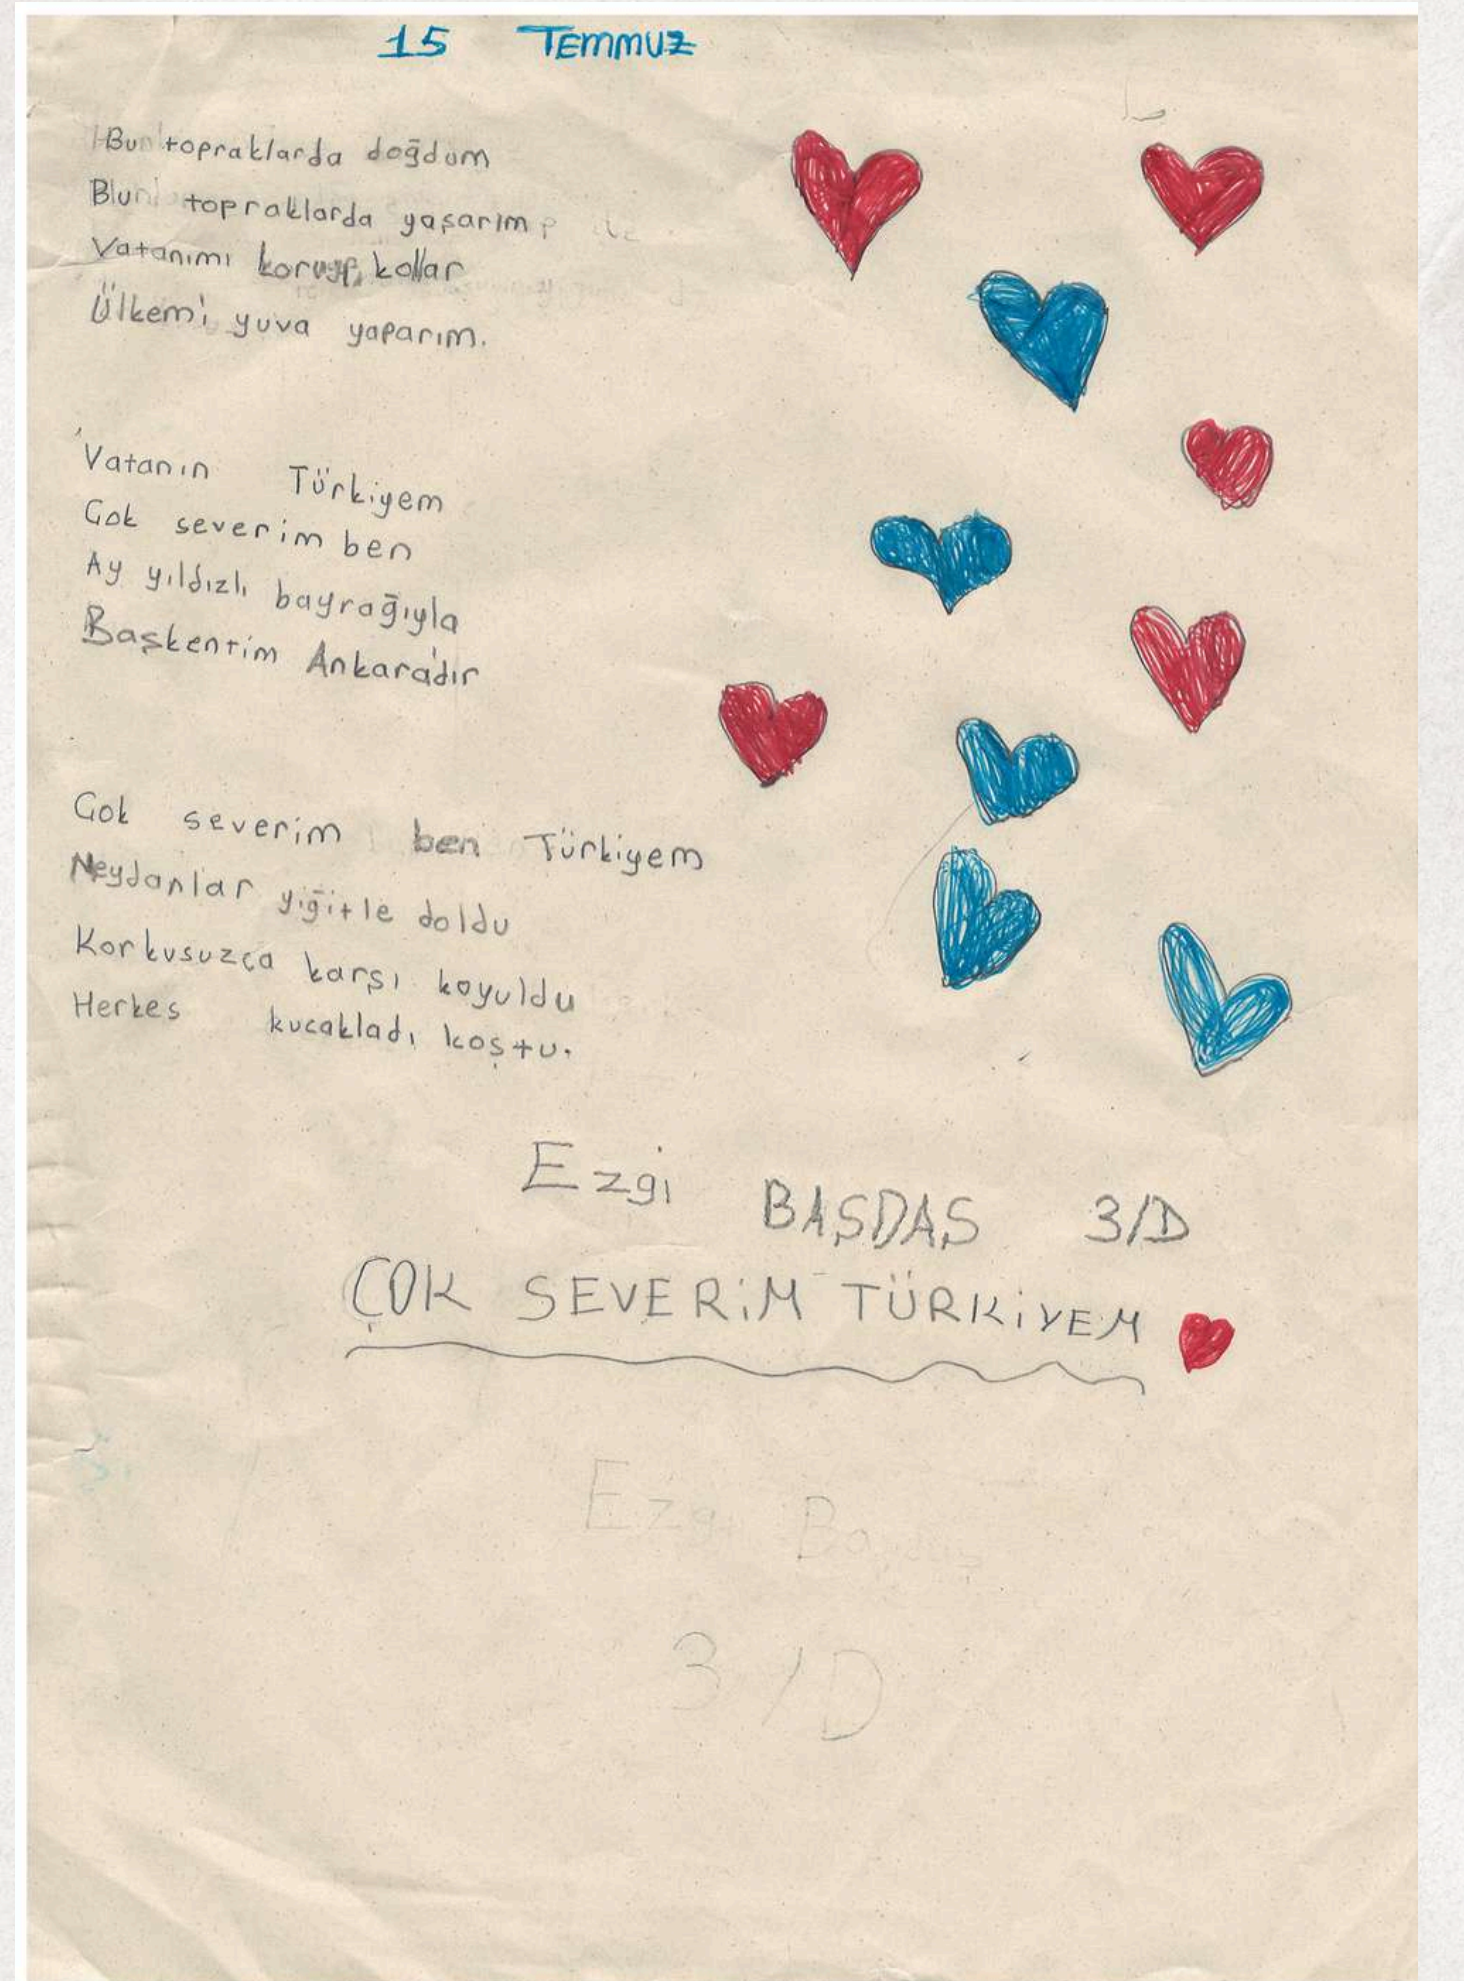 15 TEMMUZ
Bu topraklarda doğdum
Bu topraklarda yaşarım
Vatanımı koruyp, kollar
Ülkemi yuva yaparım.
Vatanın Türkiyem
Çok severim ben
Ay yıldızlı bayrağıyla
Başkentim Ankara'dır
Çok severim ben Türkiyem
Neydanlar yiğitle doldu
Korkusuzca karşı koyuldu
Herkes kucakladı koştu.
Ezgi BAŞDAŞ 3/D
ÇOK SEVERİM TÜRKİYEM
Ezgi Başdaş
3/D